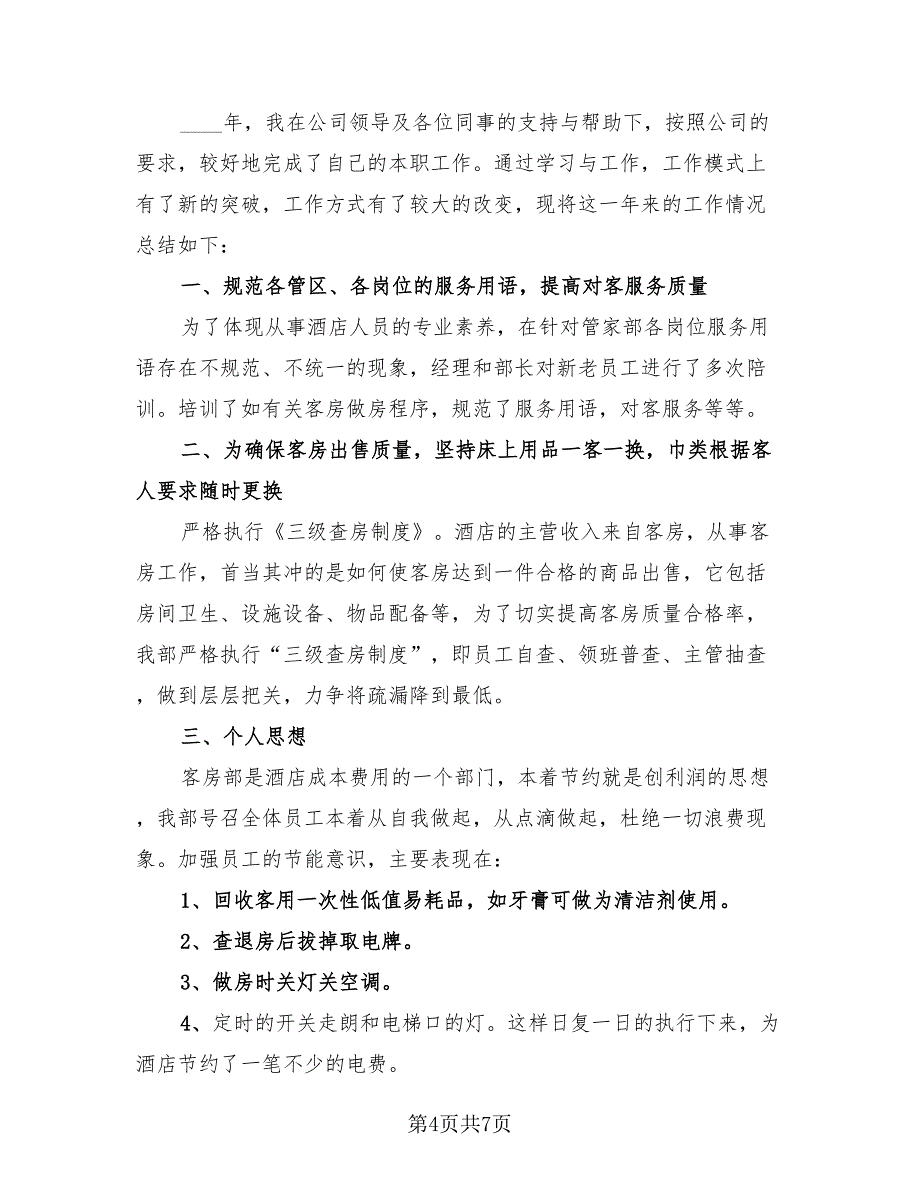 ____年，我在公司领导及各位同事的支持与帮助下，按照公司的
要求，较好地完成了自己的本职工作。通过学习与工作，工作模式上
有了新的突破，工作方式有了较大的改变，现将这一年来的工作情况
总结如下：
一、规范各管区、各岗位的服务用语，提高对客服务质量
为了体现从事酒店人员的专业素养，在针对管家部各岗位服务用
语存在不规范、不统一的现象，经理和部长对新老员工进行了多次陪
训。培训了如有关客房做房程序，规范了服务用语，对客服务等等。
二、为确保客房出售质量，坚持床上用品一客一换，巾类根据客
人要求随时更换
严格执行《三级查房制度》。酒店的主营收入来自客房，从事客
房工作，首当其冲的是如何使客房达到一件合格的商品出售，它包括
房间卫生、设施设备、物品配备等，为了切实提高客房质量合格率，
我部严格执行“三级查房制度”，即员工自查、领班普查、主管抽查
，做到层层把关，力争将疏漏降到最低。
三、个人思想
客房部是酒店成本费用的一个部门，本着节约就是创利润的思想
，我部号召全体员工本着从自我做起，从点滴做起，杜绝一切浪费现
象。加强员工的节能意识，主要表现在：
1、回收客用一次性低值易耗品，如牙膏可做为清洁剂使用。
2、查退房后拔掉取电牌。
3、做房时关灯关空调。
4、定时的开关走朗和电梯口的灯。这样日复一日的执行下来，为
酒店节约了一笔不少的电费。
第4页共7页